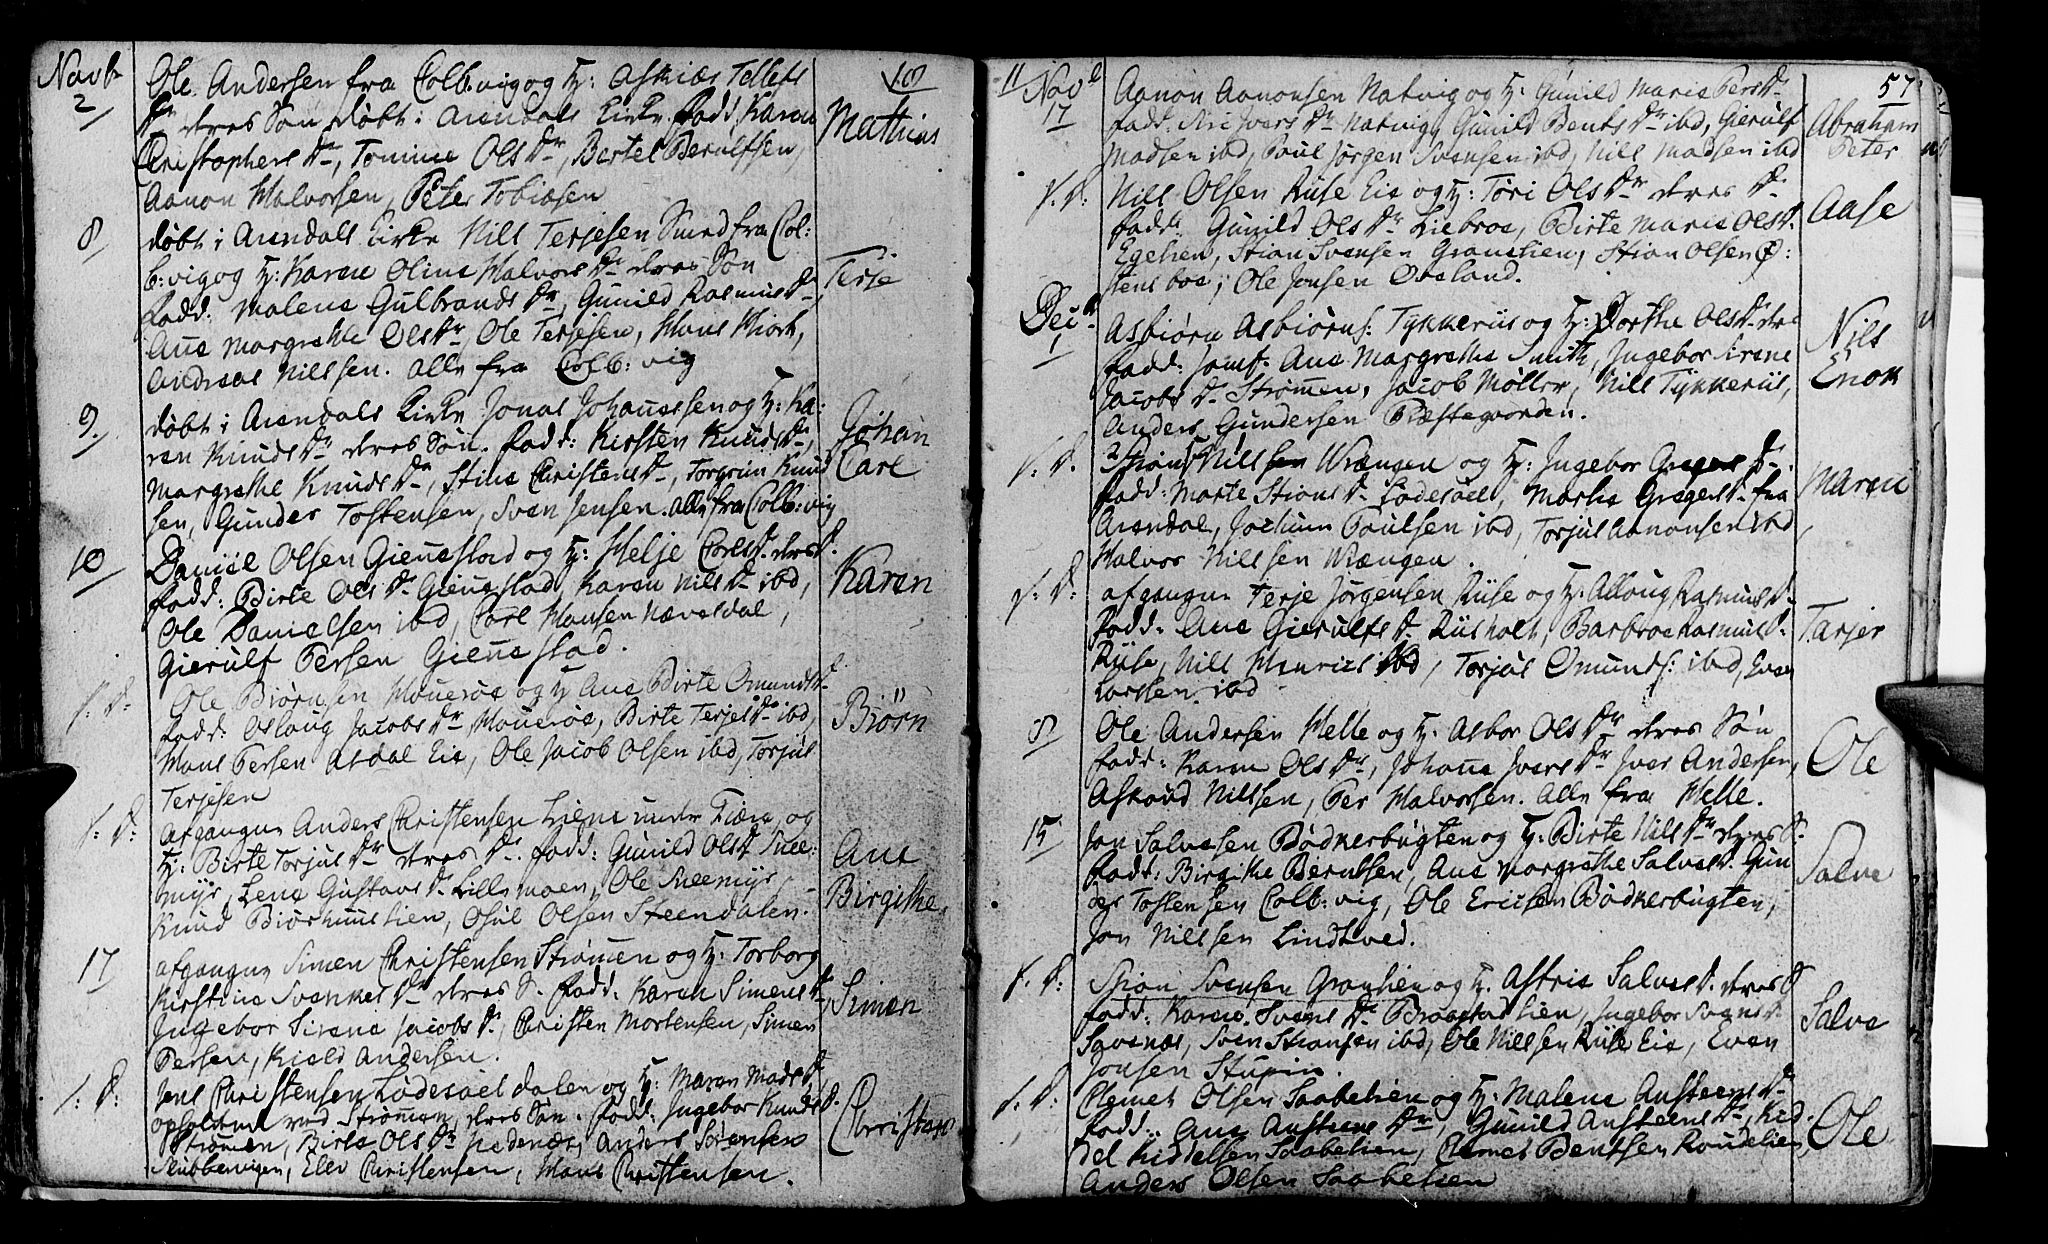 Novb
2
Ole Andersen fra Colb:vig og H: Asthiæs Tellefs
Dr deres Søn døbt i Arendals Kirke. fadd: Karen
Christophers Dr, Tomine Ols Dr, Bertel Berulfsen,
Aanon Halvorsen, Peter Tobiasen
107
Mathias
8
døbt i Arendals Kirke Nills Terjesen Smed fra Col:
b:vig og H: Karen Oline Halvors Dr deres Søn
fadd: Malene Gulbrands Dr, Gunild Rasmus D.
Ane Margrethe Ols Dr, Ole Terjesen, Hans Hiort,
Andreas Nillsen. Alle fra Colb:vig
Terje
9.
døbt i Arendals Kirke Jonas Johannessen og H: Ka:
ren Knuds Dr deres Søn. fadd: Kirsten Knuds Dr,
Margrethe Knuds Dr, Stine Christens D., Torgrim Knud
sen, Gunder Tostensen, Sven Jensen. Alle fra Colb:vig
Johan
Carl
10
Daniel Olsen Giennestad og H: Helje Carls D. deres D.
fadd: Birte Ols Dr Giennestad, Karen Nils D. ibd,
Ole Danielsen ibd, Carl Hansen Næversdal,
Gierulf Persen Giennestad.
Karen
s: D:
Ole Biørnsen Mouerøe og H Ane Birte Omunds D.
fadd: Oslaug Jacobs Dr, Mouerøe, Birte Terjes Dr ibd,
Hans Persen Asdal Eie, Ole Jacob Olsen ibd, Torjul
Terjesen
Biørn
s: D:
afgangne Anders Christensen Liene under Tiære og
H: Birte Torjuls Dr deres D. fadd: Gunild Ols D Snee:
myr, Lene Gustavs D. Lillemoen, Ole Sneemyr
Knud Biørknuslien, Osul Olsen Steendalen.
Ane
Birgithe
17
afgangne Simen Christensen Strømen og H: Torborg
Kirstine Svenkes Dr deres S. fadd. Karen Simens D.
Ingebor Sirene Jacobs D., Christen Mortensen, Simen
Persen, Kield Andersen.
Simen
s: D:
Jens Christensen Lødesøel dalen og H: Maren Mads D.
opholdend ved Strømen, deres Søn. fadd: Ingebor Knuds D.
Strømen, Birte Ols Dr Nedenæs, Anders Sørensen
Skibbervigen, Elev Christensen, Hans Christensen.
Christen
11
Novb
17
Aanon Aanonsen Natvig og H: Gunild Marie Pers D.
fadd. Siri Ivers Dr Natvig, Gunild Bents Dr ibd, Gierulf
Madsen ibd, Poul Jørgen Svensen ibd, Nills Madsen ibd
57
Abraham
Peter
s: D:
Nills Olsen Riise Eie og H: Tori Ols Dr deres D.
fadd. Gunild Ols Dr Liebroe, Birte Marie Ols D.
Egelien, Stian Svensen Granelien, Stian Olsen Ø:
stensboe, Ole Jonsen Obeland.
Aase
Decb
1
Asbiørn Asbiørns: Tykkeriis og H: Dorthe Ols D. dre
fadd: Jomf. Ane Margrethe Smith, Ingebor Sirene
Jacobs D. Strømen, Jacob Møller, Nills Tykkeriis,
Anders Gundersen Præstegaarden.
Nils
Enok
s: D.
Stian Nillsen Wrængen og H: Ingebor Gregers D.
fadd: Marte Stians D. Lødesøel, Marthe Gregers D. fra
Arendal, Jochum Poulsen ibd, Torjuls Aanonsen ibd
Halvor Nillsen Wrængen.
Maren
s: D:
afgangne Terje Jørgensen Riise og H: Allaug Rasmus D.
fadd: Ane Gierulfs D. Riisholt, Barbroe Rasmus D.
Riise, Nills Henrics: ibd, Torjuls Omunds: ibd, Even
Larssen ibd.
Tarjer
8
Ole Andersen Helle og H. Asbor Ols Dr deres Søn
fadd: Karen Ols Dr, Johanne Ivers Dr Iver Andersen,
Askoud Nillsen, Per Halvorsen. Alle fra Helle.
Ole
15
Jon Salvesen Bødkerbugten og H: Birte Nils Dr deres S.
fadd: Birgithe Berulfsen, Ane Margrethe Salves D. Gun
der Tostensen Colb:vig, Ole Ericsen Bødkerbugten,
Jon Nillsen Lindtved.
Salve
s. D:
Stian Svensen Granelien og H. Astrie Salves D. deres S
fadd. Karen Svens Dr Braastadlien, Ingebor Svens D.
Savenæs, Sven Stiansen ibd, Ole Nillsen Riise Eie, Even
Jonsen Stupin.
Salve
s: D:
Clemet Olsen Saabelien og H: Malene Austeens D.
fadd: Ane Austeens Dr, Gunild Austeens Dr, Kid
del Kiddelsen Saabelien, Clemet Bentsen Roudelien,
Anders Olsen Saabelien
Ole